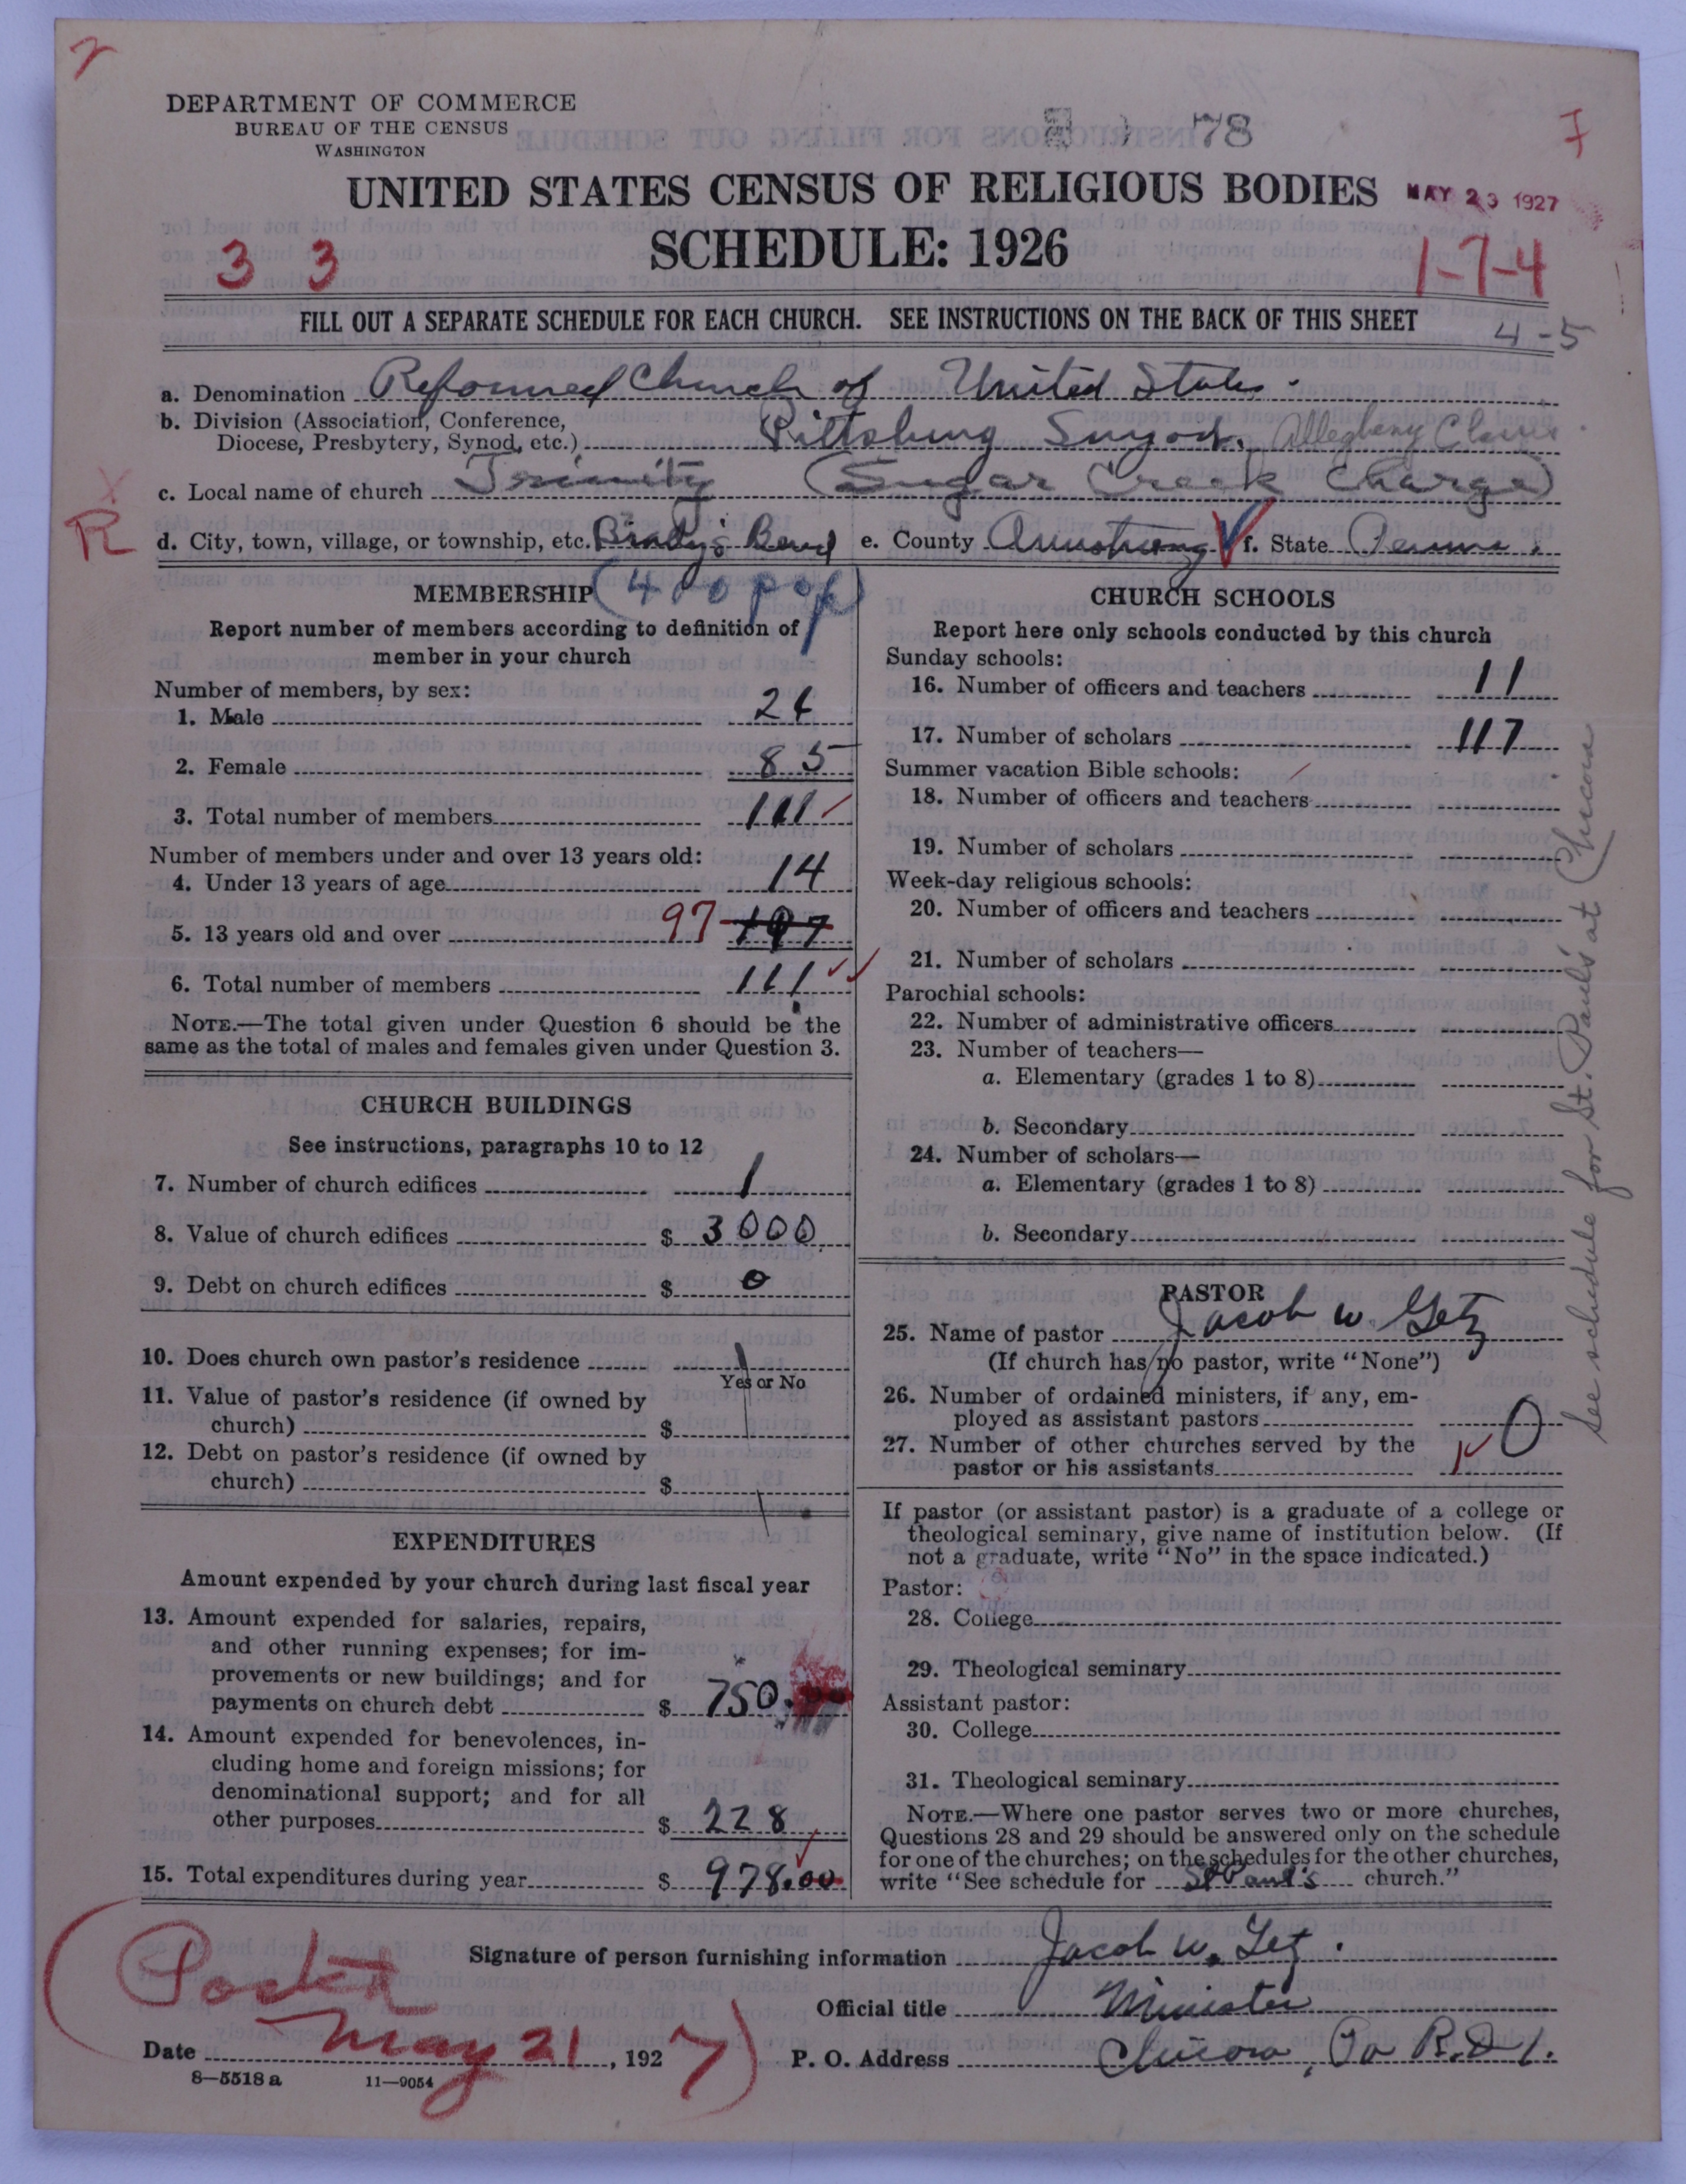 2
DEPARTMENT OF COMMERCE
BUREAU OF THE CENSUS
WASHINGTON
78
7
UNITED STATES CENSUS OF RELIGIOUS BODIES
MAY 23 1927
SCHEDULE: 1926
3 3
1-7-4
FILL OUT A SEPARATE SCHEDULE FOR EACH CHURCH. SEE INSTRUCTIONS ON THE BACK OF THIS SHEET
4-5
a. Denomination Reformed Church of United States.
b. Division (Association, Conference,
Diocese, Presbytery, Synod, etc.) Pittsburg Synod. Allegheny Classis
c. Local name of church Trinity (Sugar Creek Charge)
R
d. City, town, village, or township, etc. Brady's Bend e. County Armstrong f. State Penna.
MEMBERSHIP (400 pop)
Report number of members according to definition of
member in your church
Number of members, by sex:
1. Male 26
2. Female 85
3. Total number of members 111
Number of members under and over 13 years old:
4. Under 13 years of age 14
5. 13 years old and over 97 197
6. Total number of members 111
NOTE.—The total given under Question 6 should be the
same as the total of males and females given under Question 3.
CHURCH BUILDINGS
See instructions, paragraphs 10 to 12
7. Number of church edifices 1
8. Value of church edifices $ 3000
9. Debt on church edifices $ 0
10. Does church own pastor's residence
Yes or No
11. Value of pastor's residence (if owned by
church) $
12. Debt on pastor's residence (if owned by
church) $
EXPENDITURES
Amount expended by your church during last fiscal year
13. Amount expended for salaries, repairs,
and other running expenses; for im-
provements or new buildings; and for
payments on church debt $ 750.
14. Amount expended for benevolences, in-
cluding home and foreign missions; for
denominational support; and for all
other purposes $ 228
15. Total expenditures during year $ 978.00
CHURCH SCHOOLS
Report here only schools conducted by this church
Sunday schools:
16. Number of officers and teachers 11
17. Number of scholars 117
Summer vacation Bible schools:
18. Number of officers and teachers
19. Number of scholars
Week-day religious schools:
20. Number of officers and teachers
21. Number of scholars
Parochial schools:
22. Number of administrative officers
23. Number of teachers—
a. Elementary (grades 1 to 8)
b. Secondary
24. Number of scholars—
a. Elementary (grades 1 to 8)
b. Secondary
PASTOR
25. Name of pastor Jacob W. Getz
(If church has no pastor, write "None")
26. Number of ordained ministers, if any, em-
ployed as assistant pastors 0
27. Number of other churches served by the
pastor or his assistants 1
If pastor (or assistant pastor) is a graduate of a college or
theological seminary, give name of institution below. (If
not a graduate, write "No" in the space indicated.)
Pastor:
28. College
29. Theological seminary
Assistant pastor:
30. College
31. Theological seminary
NOTE.—Where one pastor serves two or more churches,
Questions 28 and 29 should be answered only on the schedule
for one of the churches; on the schedules for the other churches,
write "See schedule for St Paul's church."
See schedule for St. Paul's at Chicora
Signature of person furnishing information Jacob W. Getz.
Official title Minister
P. O. Address Chicora, Pa R.D 1.
(Pockt
Date May 21, 1927)
8—5518 a 11—9054